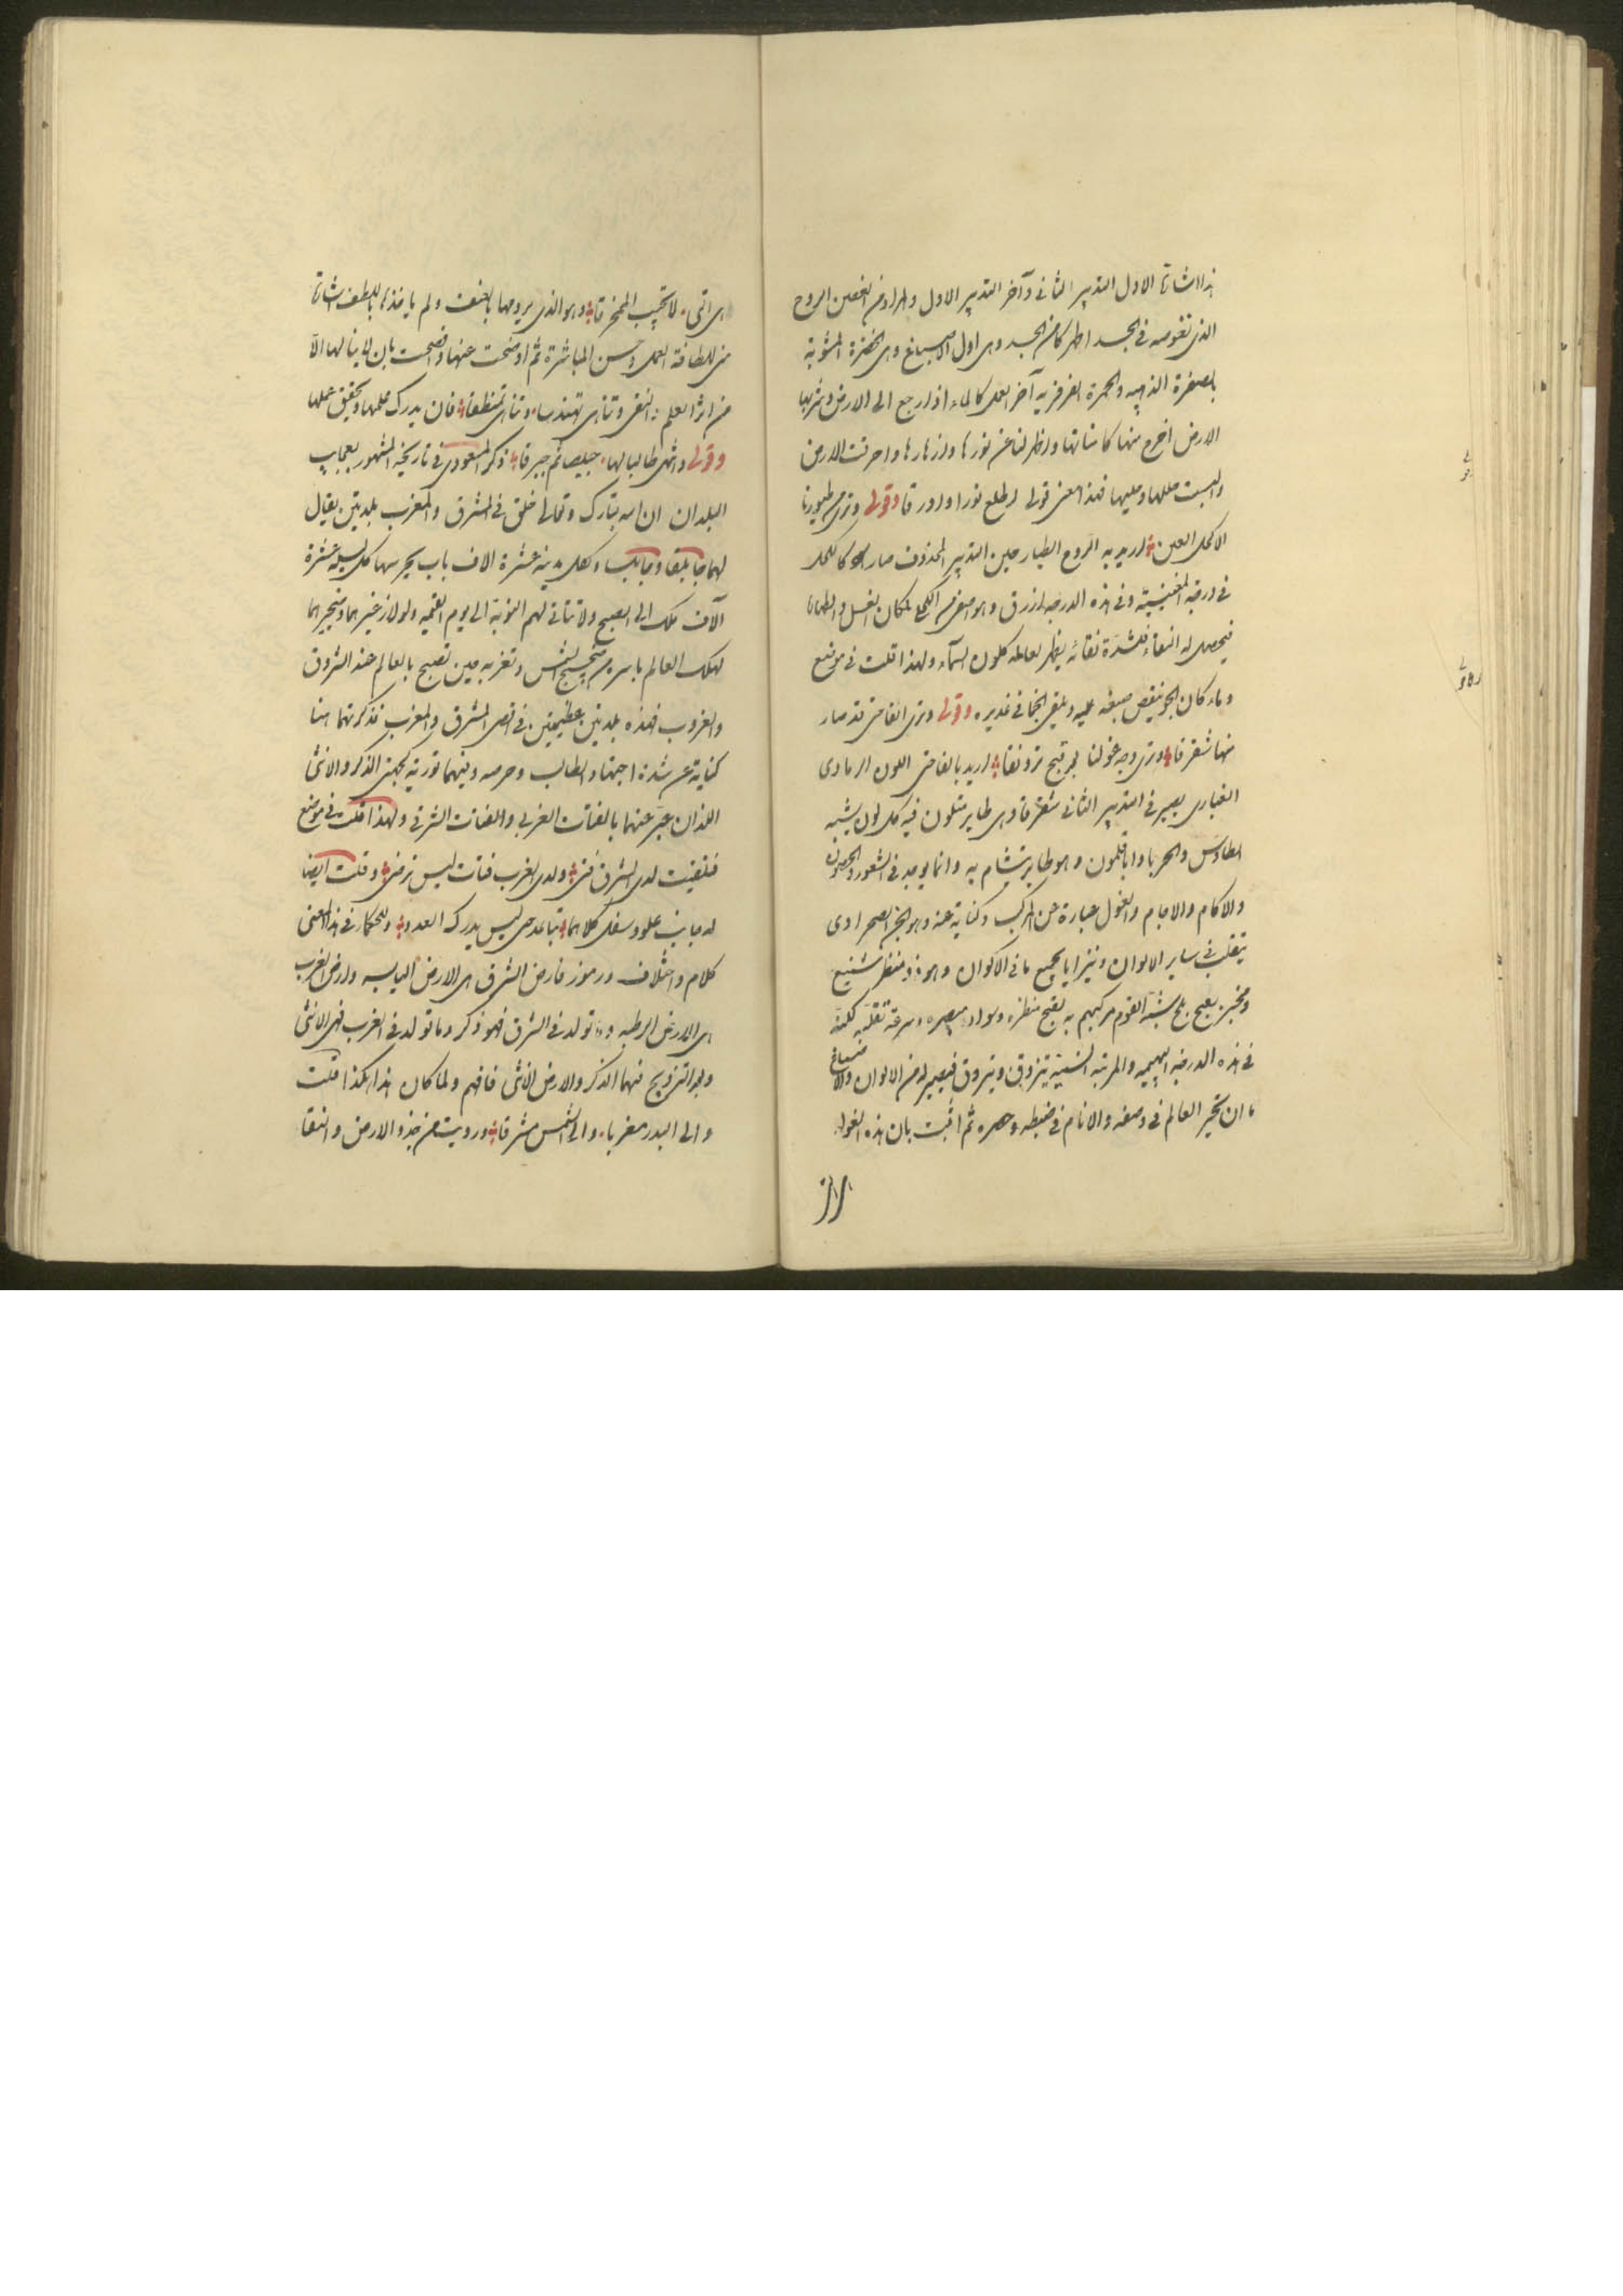 هذا اشارة الاول التدبير الثانى وآخر التدبير الاول والمراد من الغصين الروح
الذى تغوصه فى الجسد اظهر كامن الجسد وهى اول الاصباغ وهى الخضرة المشوبة
بالصفرة الذهبيه والحمرة الفرفريه آخر العمل كالماء اذا رجع الى الارض وشربها
الارض اخرج منها كامناتها واظهر لنا عن نورها وازهارها واحرقت الارض
والبست حللها وحليها فهذا معنى قولى اطلع نورا واورقا وقولى وترى طيورنا
الاكحل العين اريد به الروح الطيار حين التدبير المحذوف صار كالكحل
فى درجة المغنيسيه وفى هذه الدرجه ازرق وهو اصفى من الكحل لمكان الغسل والطهارة
فيحصل له النقاء فلشدة نقائه يظهر لعامله كلون السماء ولهذا قلت فى موضع
وماء كان الجو ينقص صبغه عليه ويلقى الخمائ فى غديره وقولى وترى الفاختى قد صار
منها شقرقا وترى وجه غولنا بعد قبح ترونقا اريد بالفاختى اللون الرمادى
الغبارى يصير فى التدبير الثانى شقرقا وهى طاير متلون فيه كل لون يشبه
الطاوس والحربا وابا قلمون وهو طاير يتشام به وانما يوجد فى الشعور والحصون
والاكام والاجام والغول عبارة عن المركب وكناية عنه وهو الجن الصحراوى
يتقلب فى ساير الالوان ويتزايا بجميع ما فى الاكوان وهو ذو منظر شنيع
ومخبر بعيج شبه القوم مركبهم به لقبح منظره وسواد مبصره وسرعة تقلبه كلمته
فى هذه الدرجه البهيميه والمرتبة السنية يتزوق ويتروق فيصير له من الالوان والاصباغ
ما ان تحير العالم فى وصفه والانام فى ضبطه وحصره ثم اثبت بان هذه الغول
هى التى لا تجيب المخرقا وهو الذى يرومها بالعنف ولم ياخذها باللطف اشارة
من للطافة العمل وحسن المباشرة ثم اوضحت عنها وافصحت بان لا ينالها الا
من اثر العلم والتقى وتناهى تهذبا وتناهى تمنطقا فان يدرك علمها وتحقيق عملها
وقولى واشهى طالبا لها جبليصا ثم جبرقا ذكر المسعودى فى تاريخه المشهور بعجايب
البلدان ان الله تبارك وتعالى خلق فى المشرق والمغرب بلدتين يقال
لهما جابلقا وجابلسا ولكل مدينه عشرة الاف باب يحرسها كل ليلة عشرة
آلاف ملك الى الصبح ولا تتاتى لهم النوبة الى يوم القيمه ولولا زغيرهما وضجيجهما
لهلك العالم باسره من ضجيج الشمس وتغربه حين تصبح بالعالم عند الشروق
والغروب فهذه بلدتين عظيمتين فى اقصى المشرق والمغرب فذكرتهما هنا
كناية عن شدة اجتهاد الطالب وحرصه وفيهما تورية بجهتى الذكر والانثى
اللذان عبر عنهما بالفتاة الغربى والفتاة الشرقى ولهذا قلت فى موضع
فلقيت لدى الشرق فتى ولدى الغرب فتاة ليس ترضى وقلت ايضا
له جانب علو وسفل كلاهما تباعد حتى ليس يدركه العدو وللحكماء فى هذا المعنى
كلام واختلاف ورموز فارض الشرق هى الارض اليابسه وارض الغرب
هى الارض الرطبه وما تولد فى الشرق فهو ذكر وما تولد فى الغرب فهى الانثى
وبعد التزويج فيهما الذكر والارض الانثى فافهم ولما كان هذا هكذا قلت
والى البدر مغربا والى الشمس مشرقا ورويت من جذو الارض والنقا